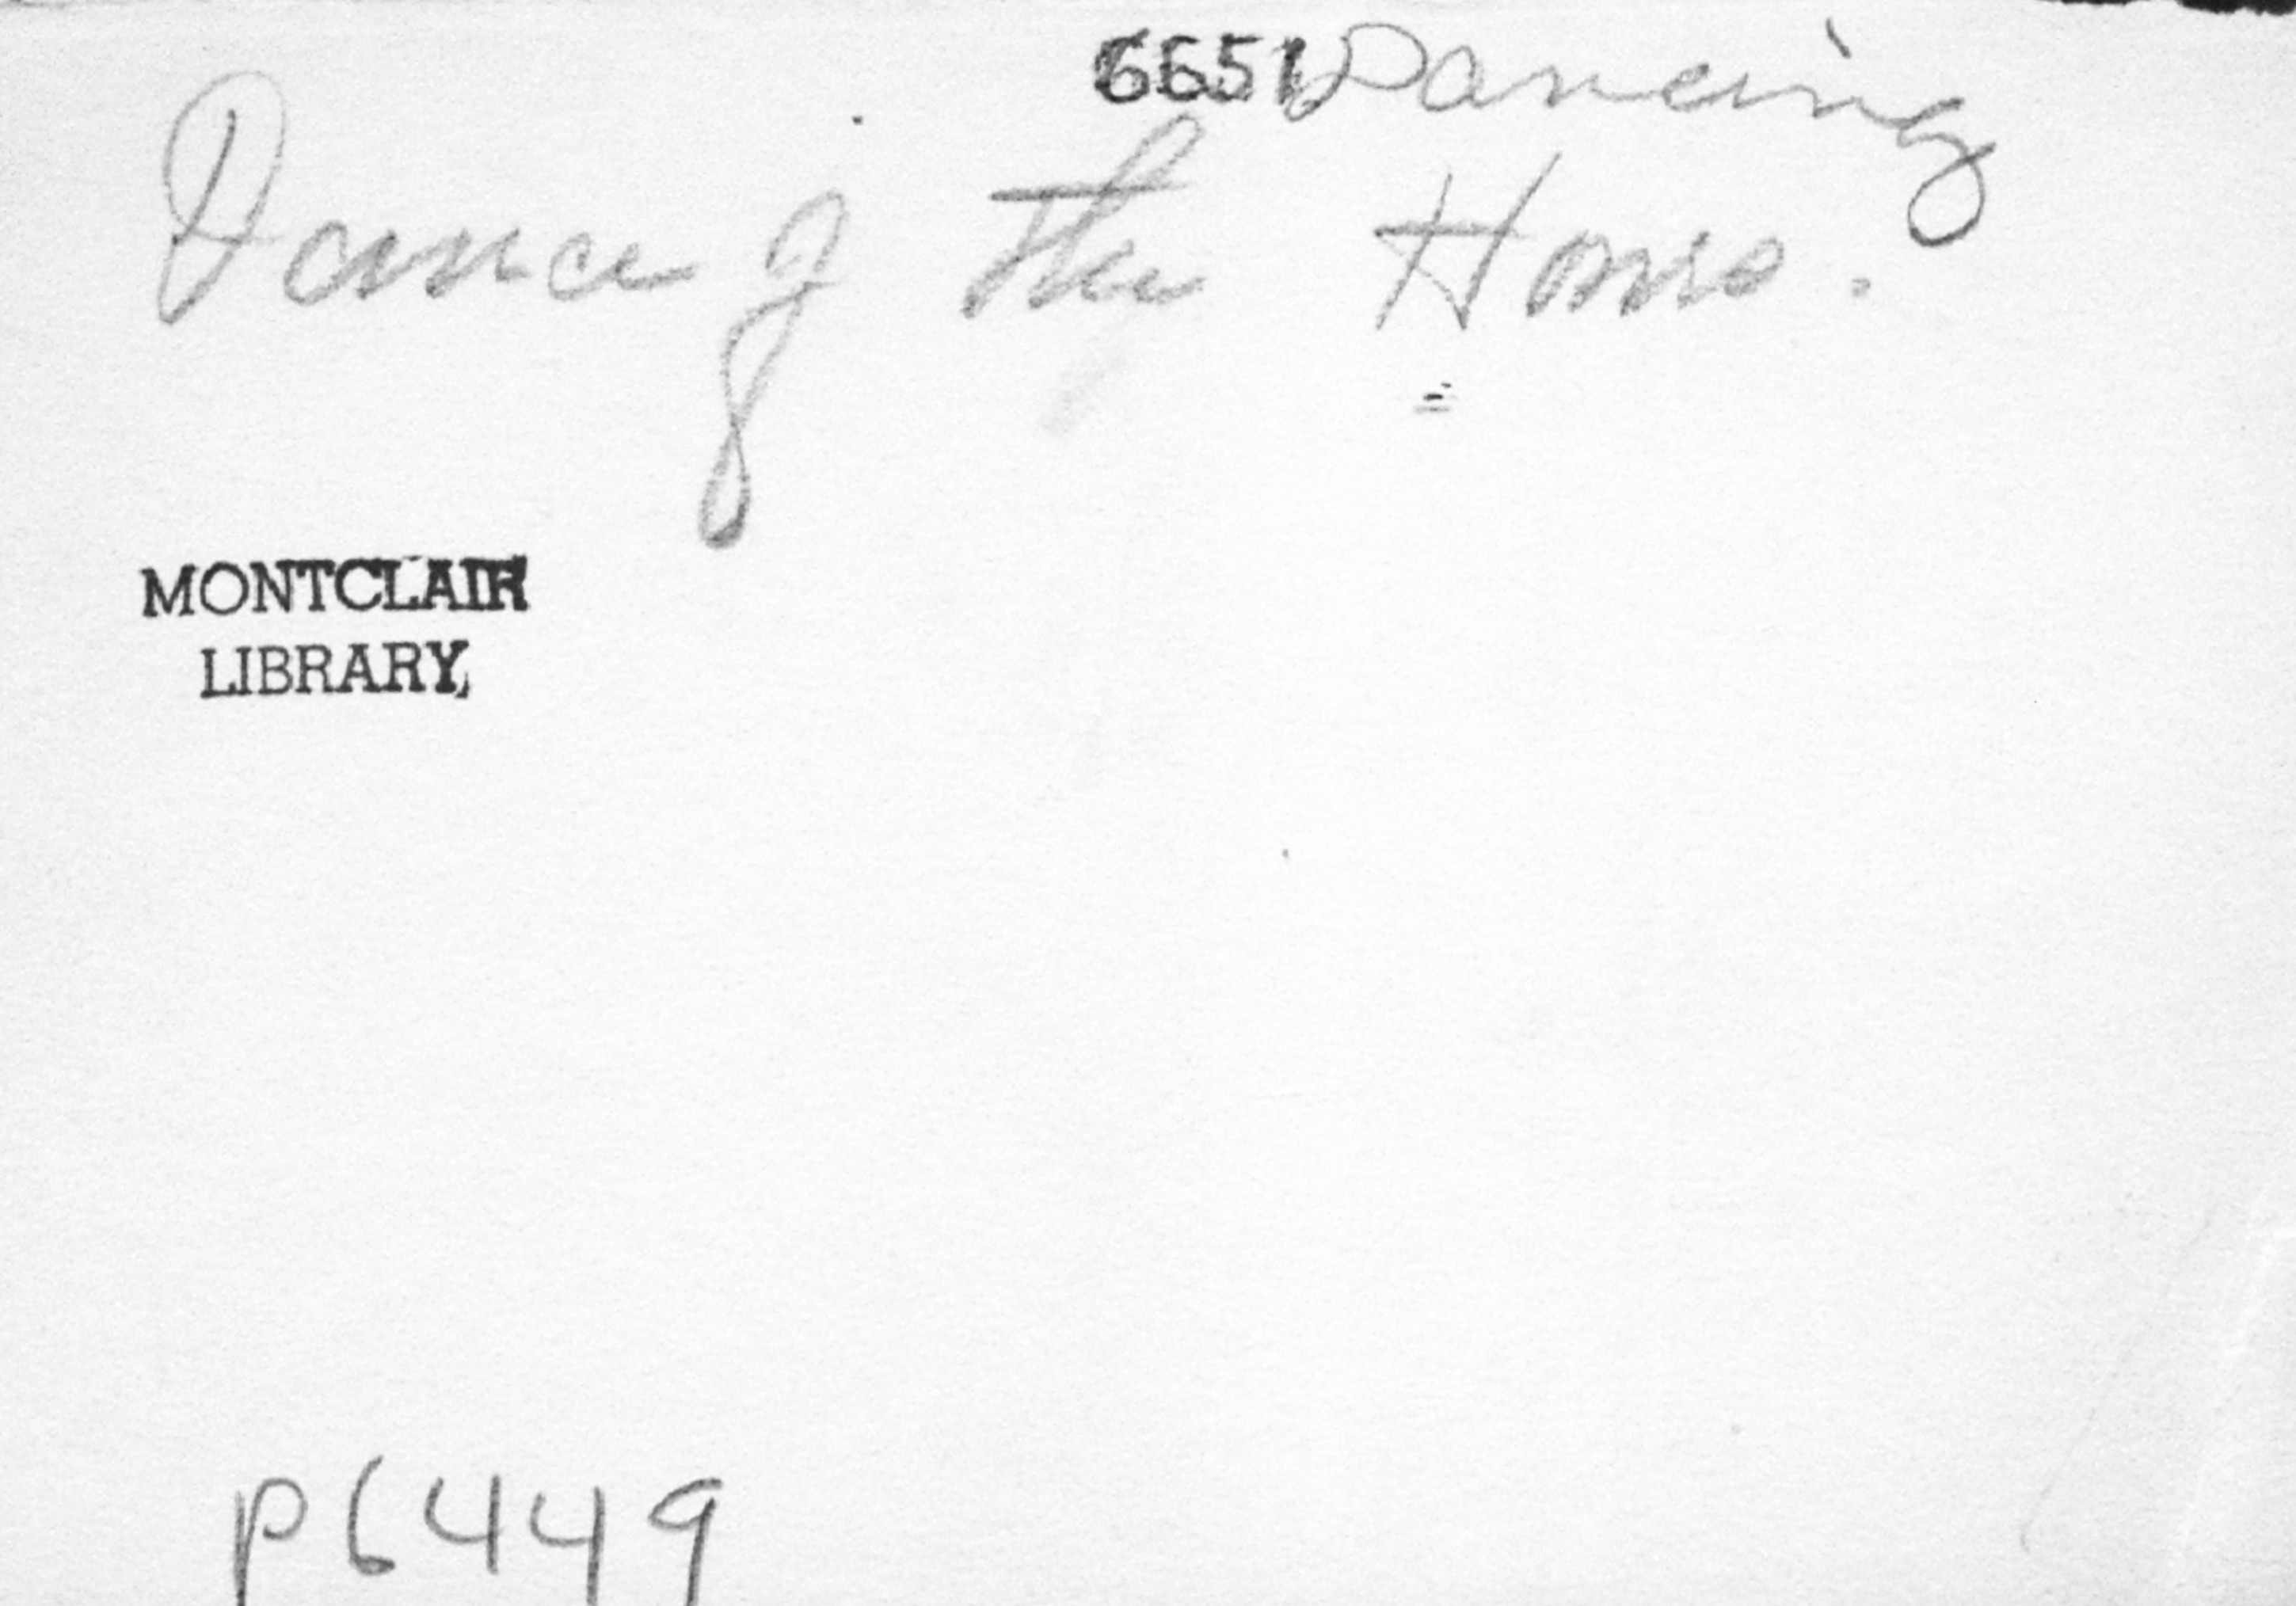 6651 Dancing
Dance of the Hours.
MONTCLAIR
LIBRARY,
P6449